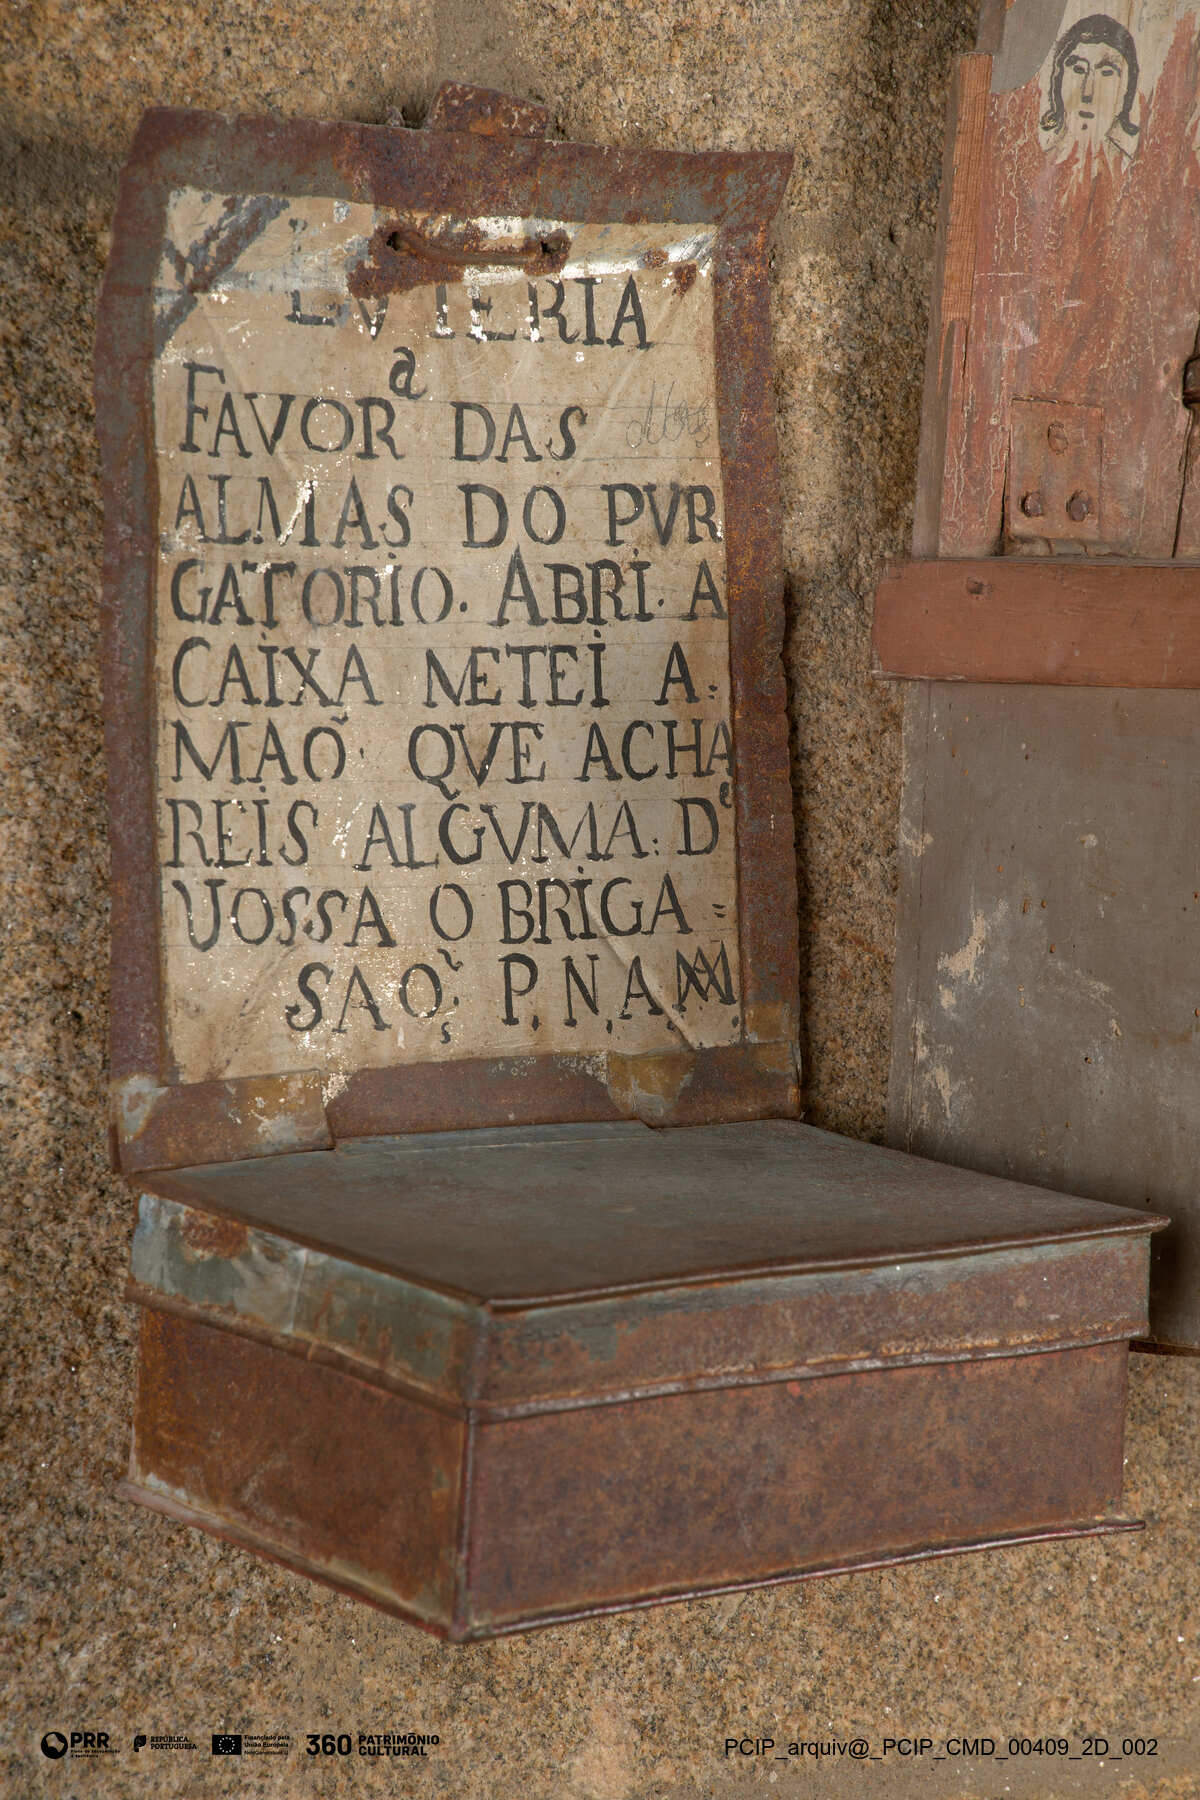 LVTERIA
a
FAVOR DAS
ALMAS DO PVR
GATORIO. ABRI. A
CAIXA METEI A:
MAÕ. QVE ACHA
REIS ALGVMA: De
VOSSA OBRIGA=
SAÕ; P. N. A. M.
PRR
REPÚBLICA
PORTUGUESA
Financiado pela
União Europeia
NextGenerationEU
360 PATRIMÓNIO
CULTURAL
PCIP_arquiv@_PCIP_CMD_00409_2D_002